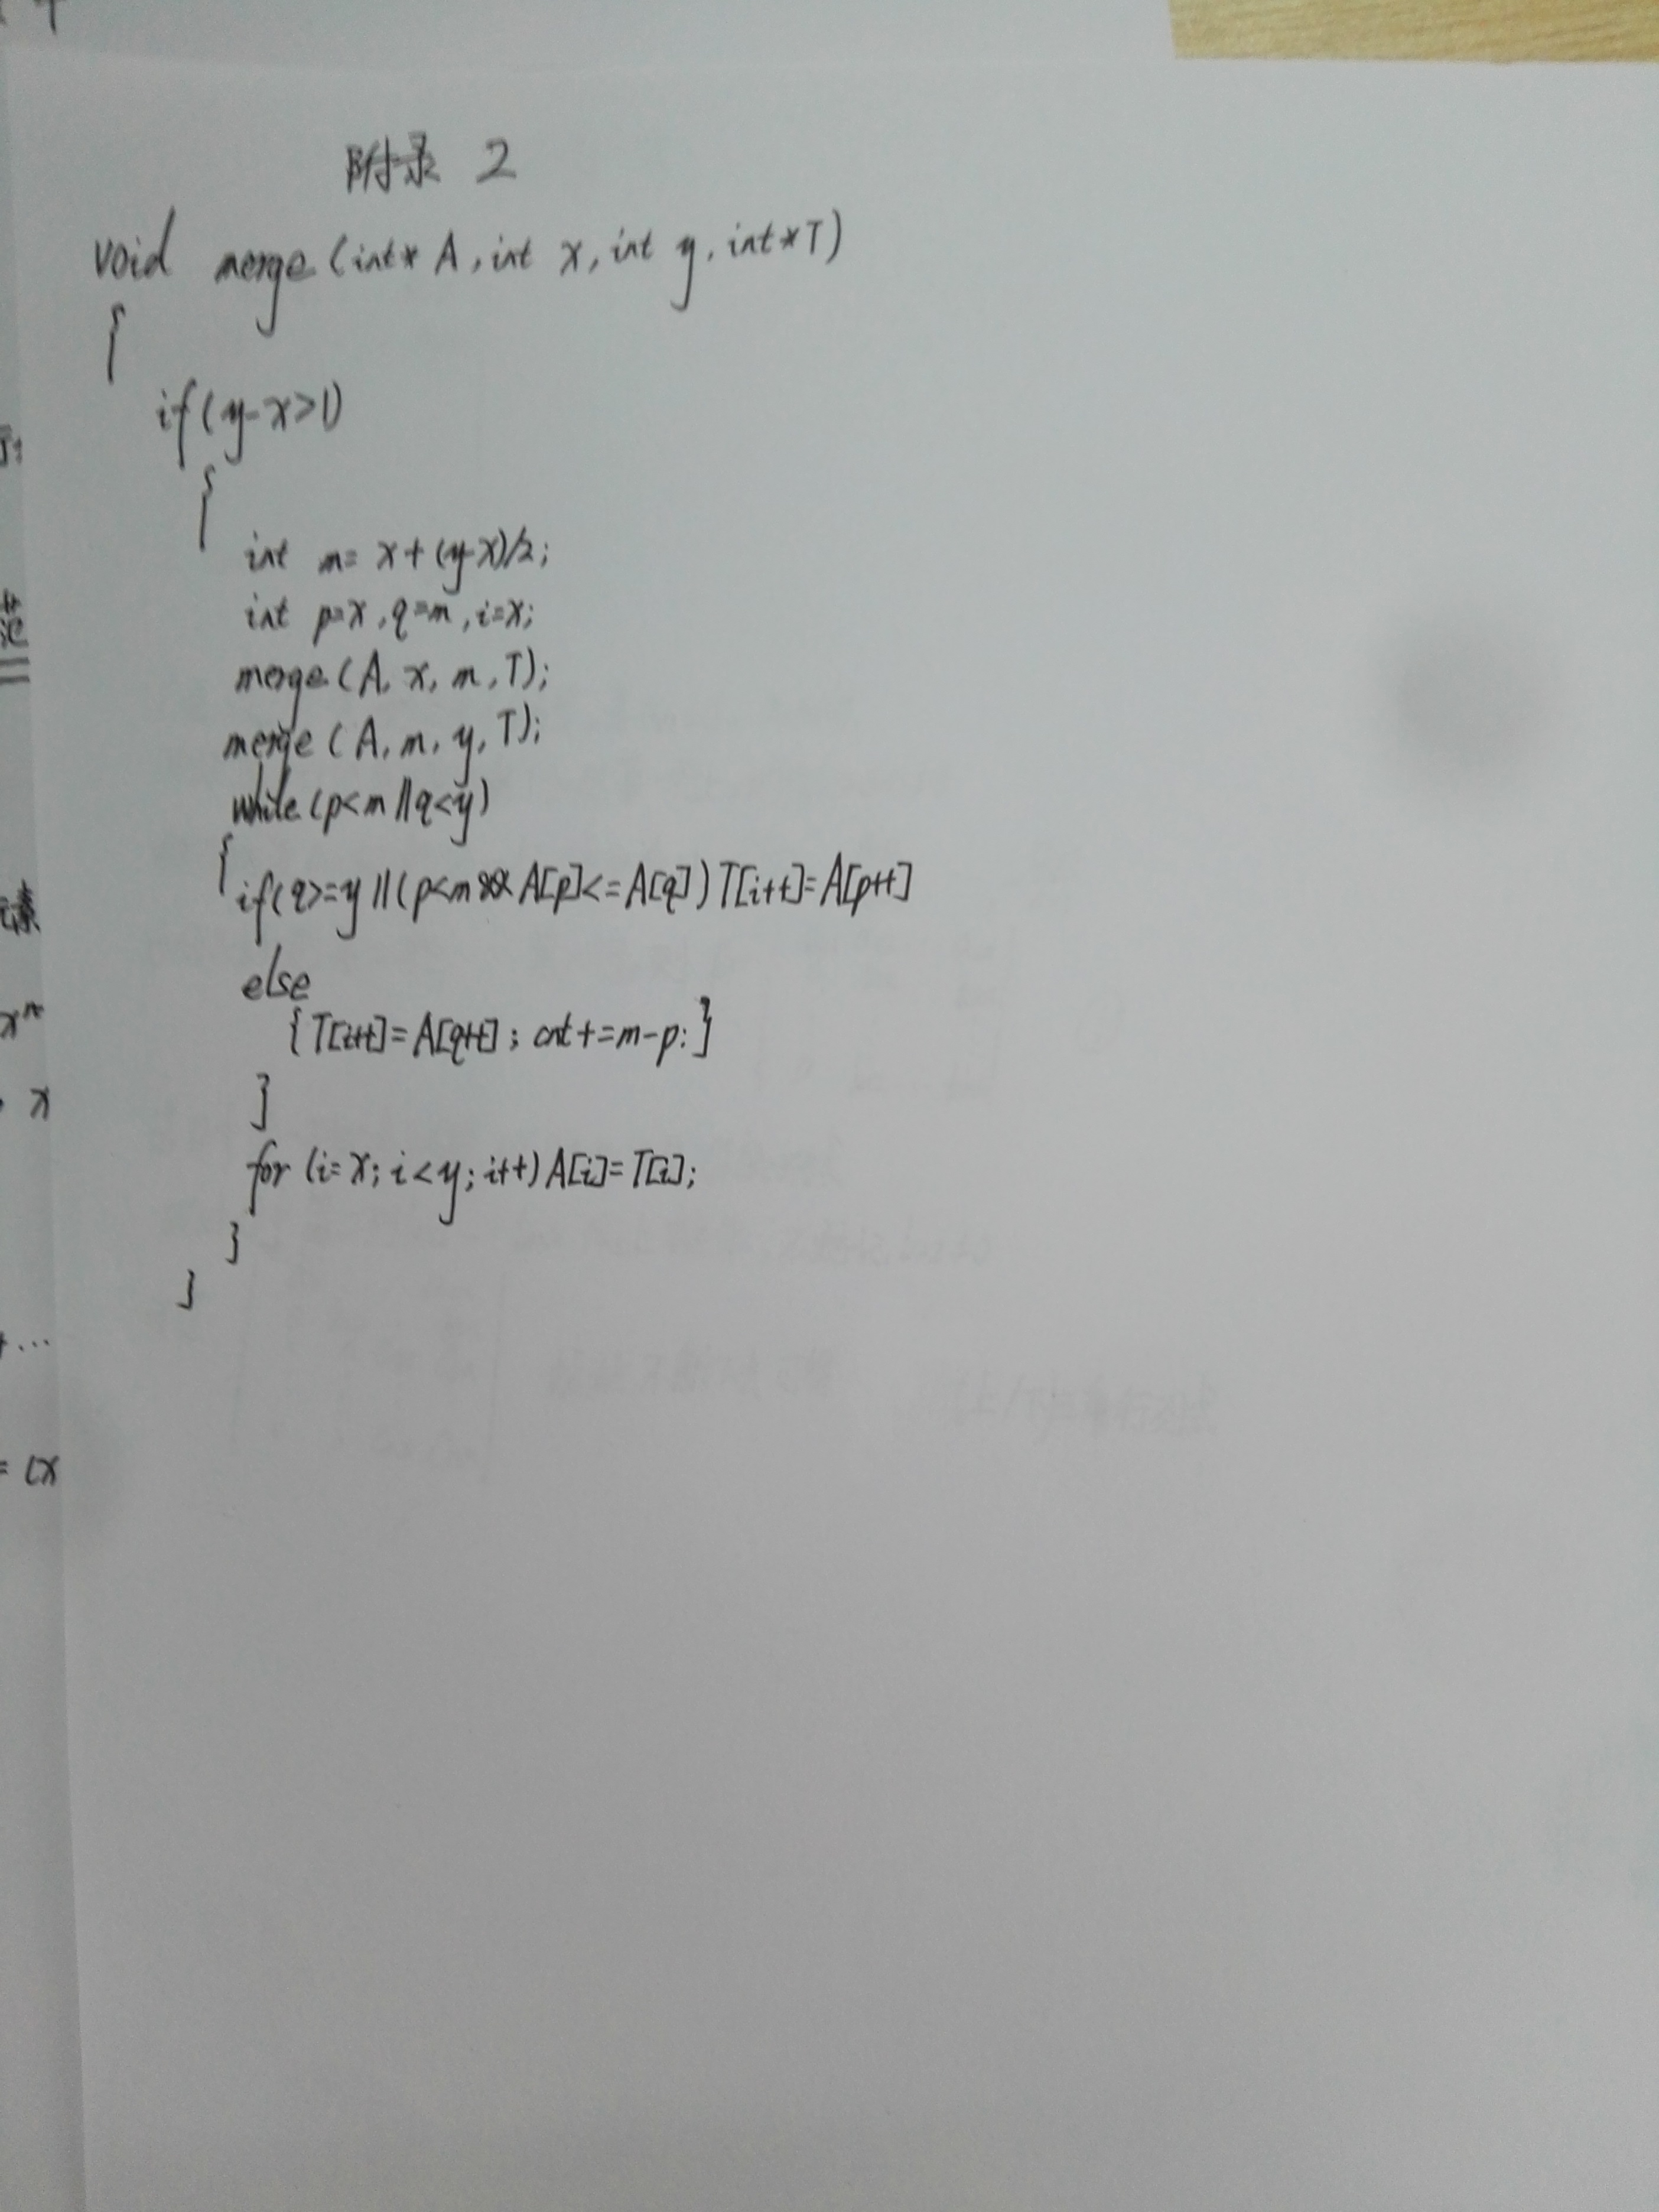 附录 2
void merge(int* A, int x, int y, int*T)
{
if(y-x>1)
{
int m= x+(y-x)/2;
int p=x, q=m, i=x;
merge(A, x, m, T);
merge(A, m, y, T);
while(p<m||q<y)
{if(q>=y||(p<m&&A[p]<=A[q])T[i++]=A[p++]
else
{T[i++]=A[q++]; cnt+=m-p;}
}
for(i=x; i<y; i++)A[i]=T[i];
}
}
范
素
xⁿ
x
+...
= (x